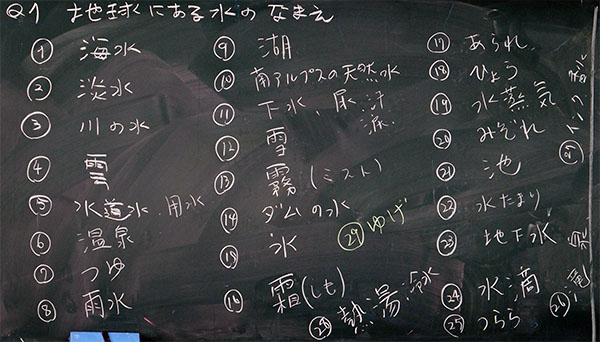 Q1 地球にある水のなまえ
① 海水
② 淡水
③ 川の水
④ 雲
⑤ 水道水、用水
⑥ 温泉
⑦ つゆ
⑧ 雨水
⑨ 湖
⑩ 南アルプスの天然水
⑪ 下水、尿、汗
涙
⑫ 雪
⑬ 霧(ミスト)
⑭ ダムの水
⑮ 氷
⑯ 霜(しも)
⑰ あられ
⑱ ひょう
⑲ 水蒸気
⑳ みぞれ
㉑ 池
㉒ 水たまり
㉓ 地下水
㉔ 水滴
㉕ つらら
㉖
㉗
㉘ 熱湯、冷水
㉙ ゆげ